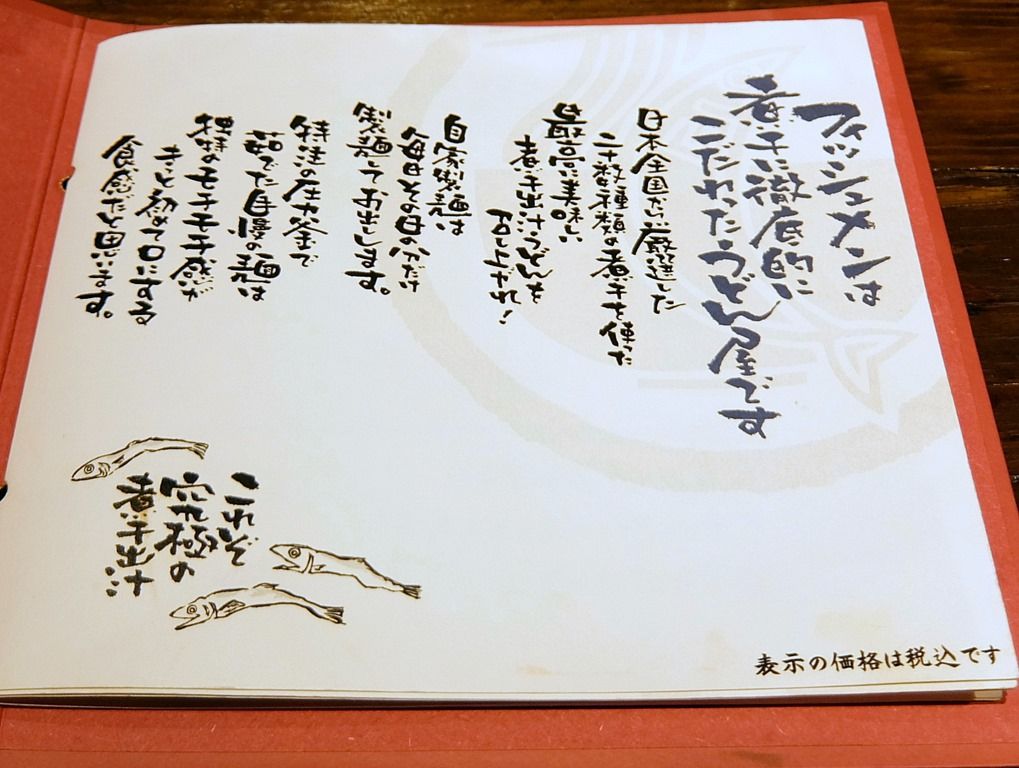 フィッシュメンは
煮干に徹底的に
こだわったうどん屋です
日本全国から厳選した
二十数種類の煮干を使った
最高に美味しい
煮干出汁うどんを
召し上がれ！
自家製麺は
毎日その日の分だけ
製麺してお出しします。
特注の圧力釜で
茹でた自慢の麺は
独特のモチモチ感が
きっと初めて口にする
食感だと思います。
これぞ
究極の
煮干出汁
表示の価格は税込です